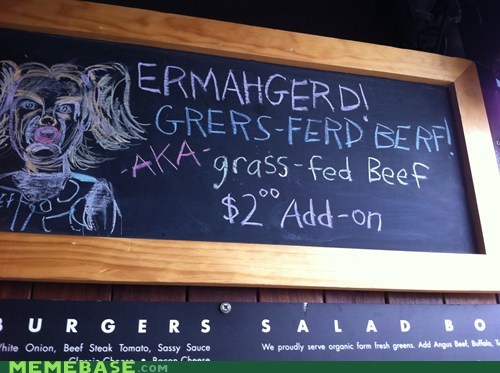 ERMAHGERD!
GRERS-FERD BERF!
-AKA- grass-fed Beef
$2.00 Add-on
BURGERS SALAD BO
White Onion, Beef Steak Tomato, Sassy Sauce
We proudly serve organic farm fresh greens. Add Angus Beef, Buffalo,
Classic Cheese • Bacon Cheese
MEMEBASE.COM